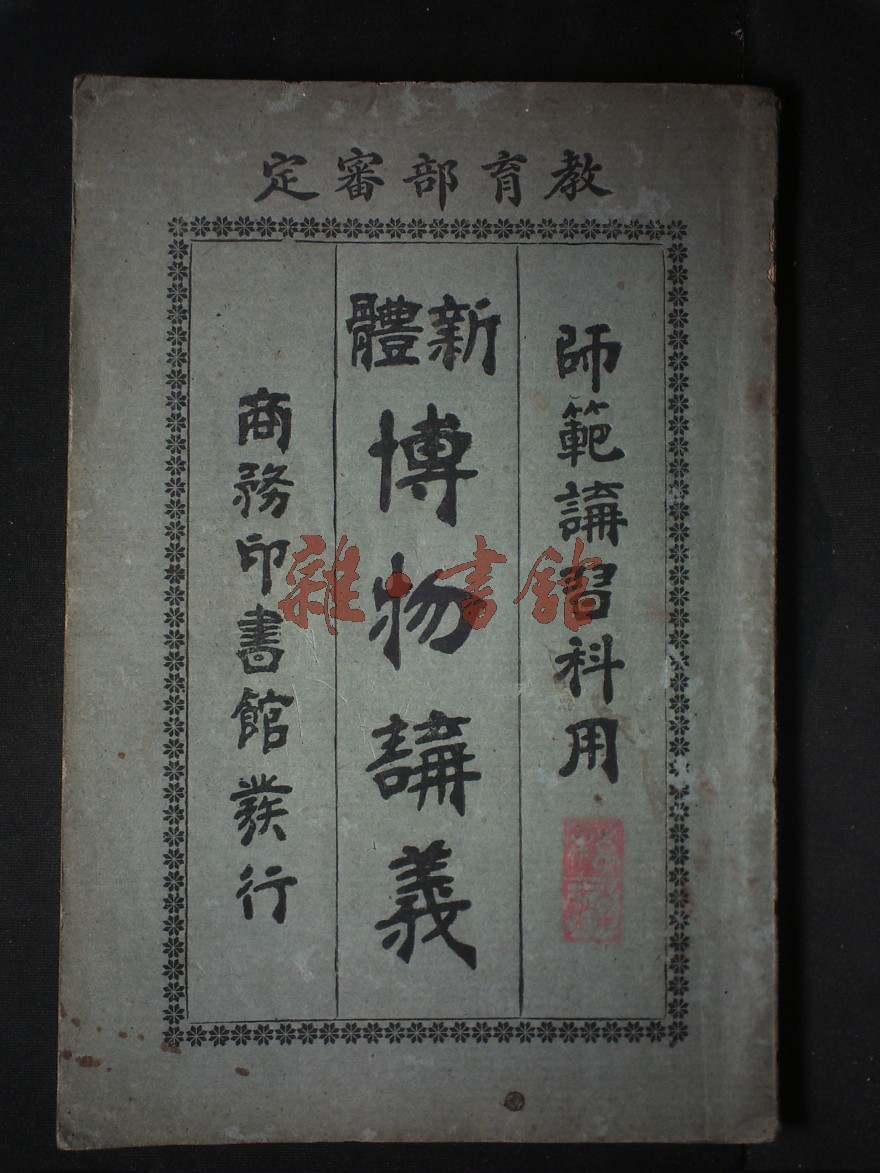 教育部審定
師範講習科用
新體
博物講義
商務印書館發行
雜·書館